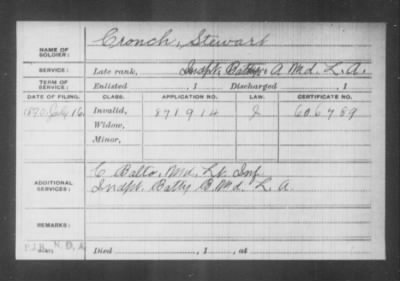 NAME OF SOLDIER: Cronch, Stewart
SERVICE: Late rank, Indpt. Batty. A Md. L. A.
TERM OF SERVICE: Enlisted , 1 Discharged , 1
DATE OF FILING. CLASS. APPLICATION NO. LAW. CERTIFICATE NO.
1890 July 16 Invalid, 871914 J 606789
Widow,
Minor,
C Balto. Md. Lt. Inf.
ADDITIONAL SERVICES: Indpt. Batty B. Md. L. A.
REMARKS:
N. D. A.
Died , 1 , at